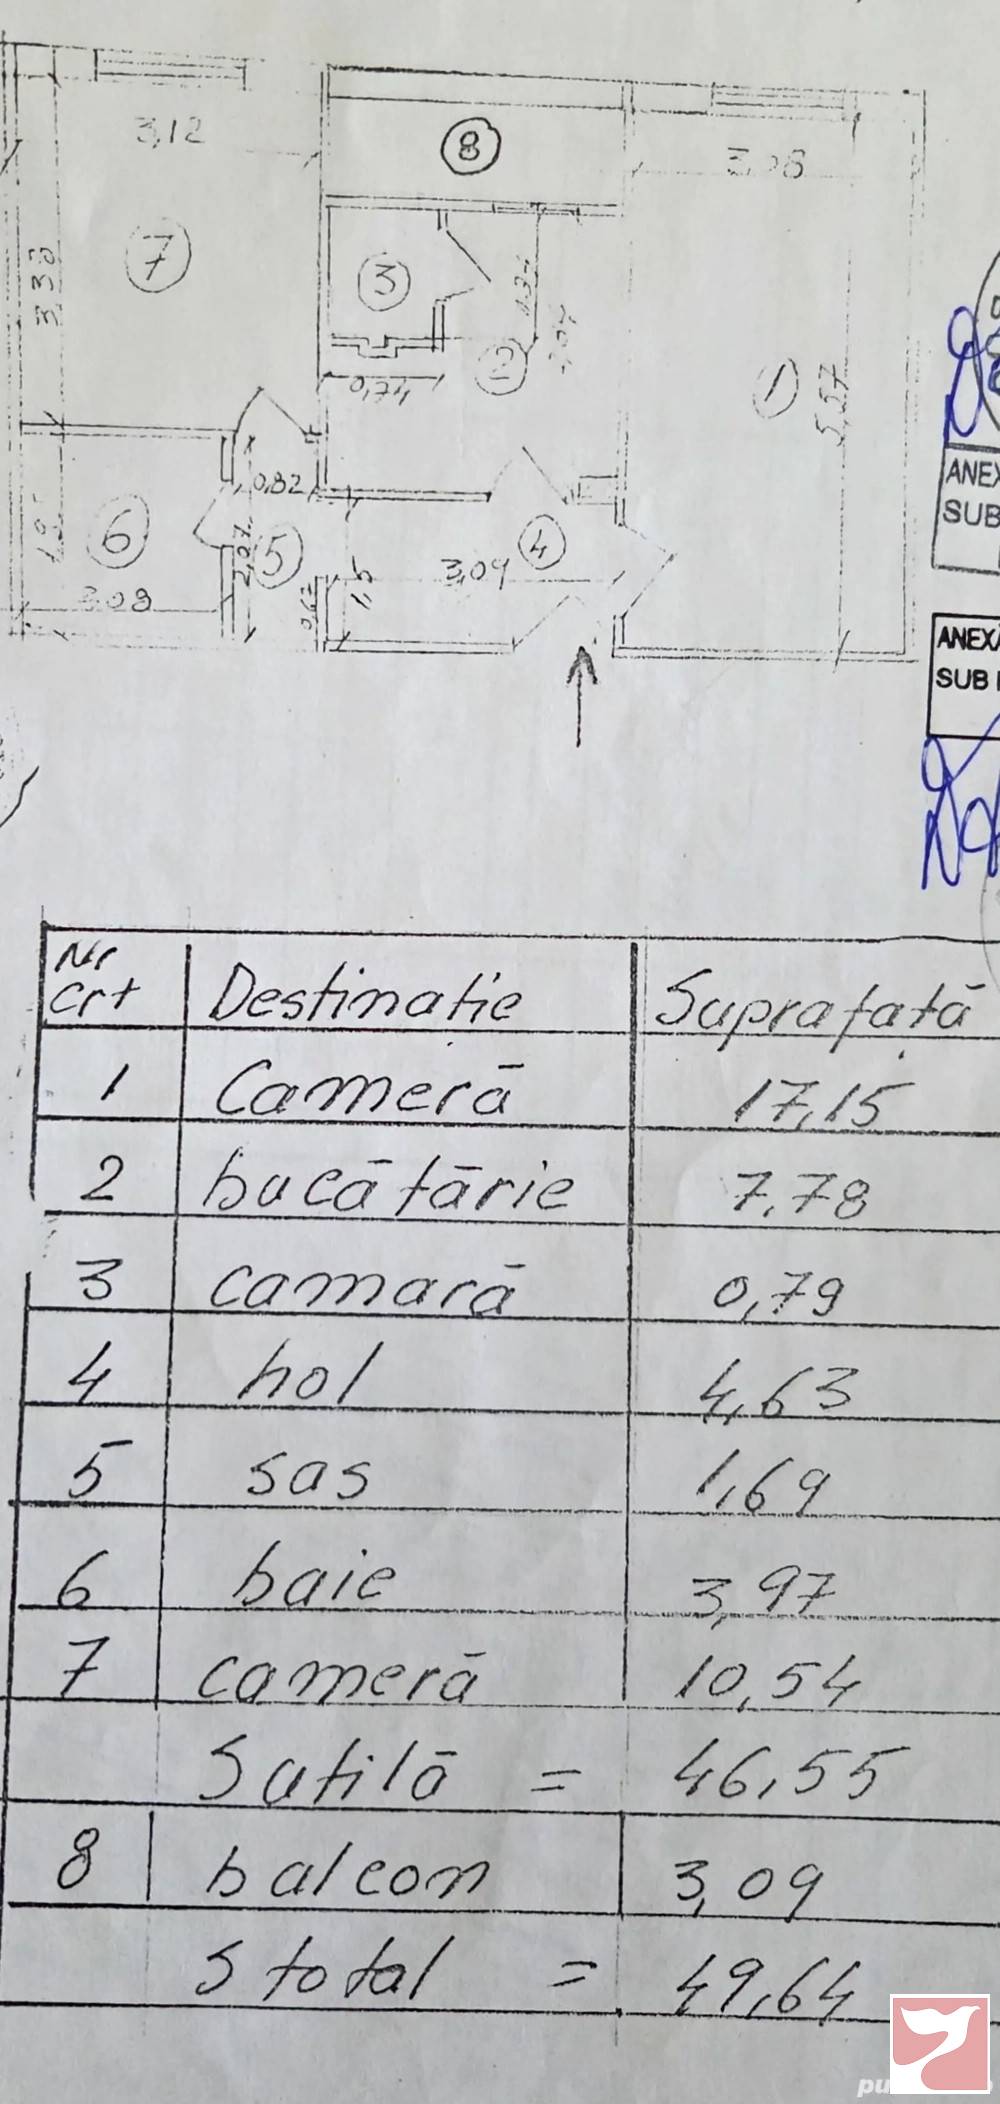 3,12
8
3,08
7
3
3,38
0,74
2
1
5,57
0,82
6
5
2,07
4
3,09
1,5
0,67
3,08
ANEX
SUB
ANEXA
SUB
Nr crt Destinatie Suprafată
1 Cameră 17,15
2 bucătărie 7,78
3 camară 0,79
4 hol 4,63
5 sas 1,69
6 baie 3,97
7 cameră 10,54
Sutilă = 46,55
8 balcon 3,09
S total = 49,64
pu